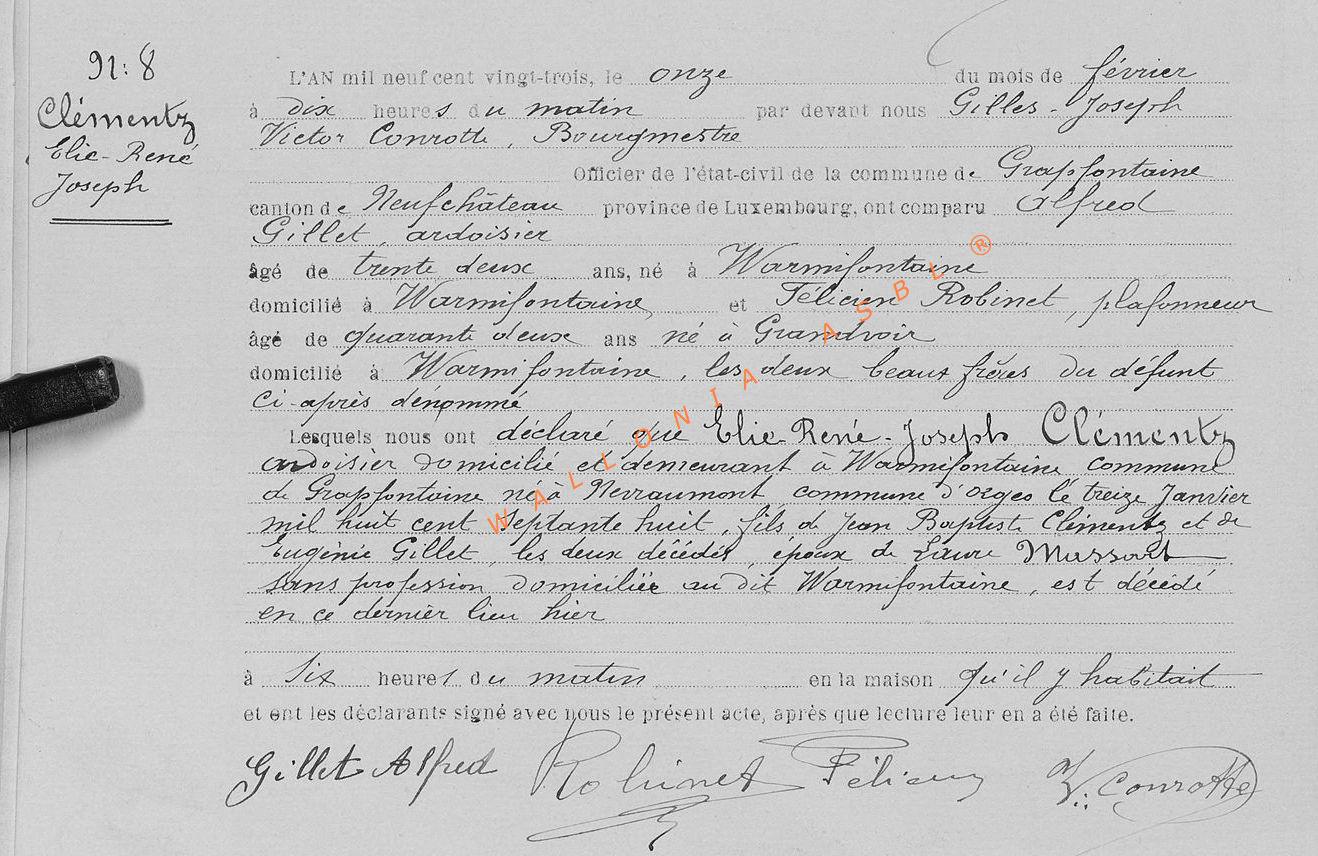 9̶1: 8
Clémentz
Elie-René
Joseph
L'AN mil neuf cent vingt-trois, le onze du mois de février
à dix heures du matin par devant nous Gilles-Joseph
Victor Conrotte, Bourgmestre
Officier de l'état-civil de la commune de Grapfontaine
canton de Neufchâteau province de Luxembourg, ont comparu Alfred
Gillet, ardoisier
âgé de trente deux ans, né à Warmifontaine
domicilié à Warmifontaine, et Félicien Robinet, plafonneur
âgé de quarante deux ans né à Grandvoir
domicilié à Warmifontaine, les deux beaux frères du défunt
ci-après dénommé
Lesquels nous ont déclaré que Elie-René-Joseph Clémentz
ardoisier domicilié et demeurant à Warmifontaine commune
de Grapfontaine né à Nevraumont commune d'orgeo le treize Janvier
mil huit cent septante huit, fils de Jean Baptiste Clémentz et de
Eugénie Gillet, les deux décédés, époux de Laure Massart
sans profession domiciliée au dit Warmifontaine, est décédé
en ce dernier lieu hier
à six heures du matin en la maison qu'il y habitait
et ont les déclarants signé avec nous le présent acte, après que lecture leur en a été faite.
Gillet Alfred Robinet Félicien V. Conrotte
WALLONIA ASBL ®